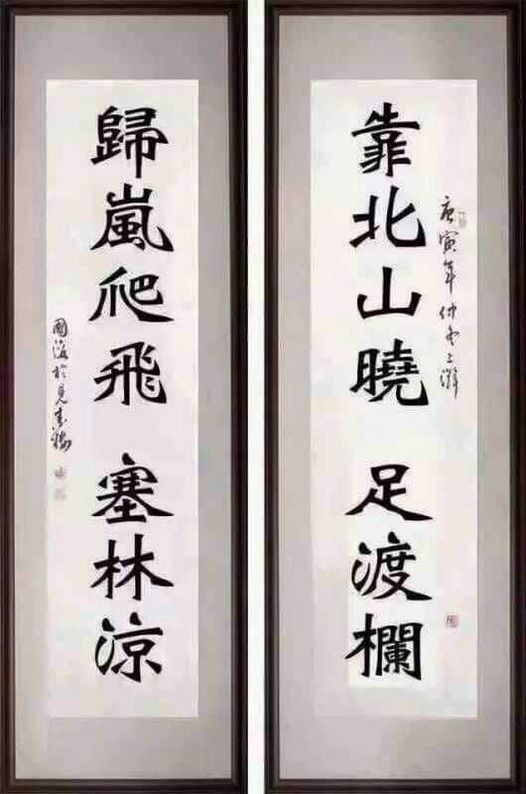 庚寅年仲冬上澣
靠北山曉 足渡欄
歸嵐爬飛 塞林涼
國 於見